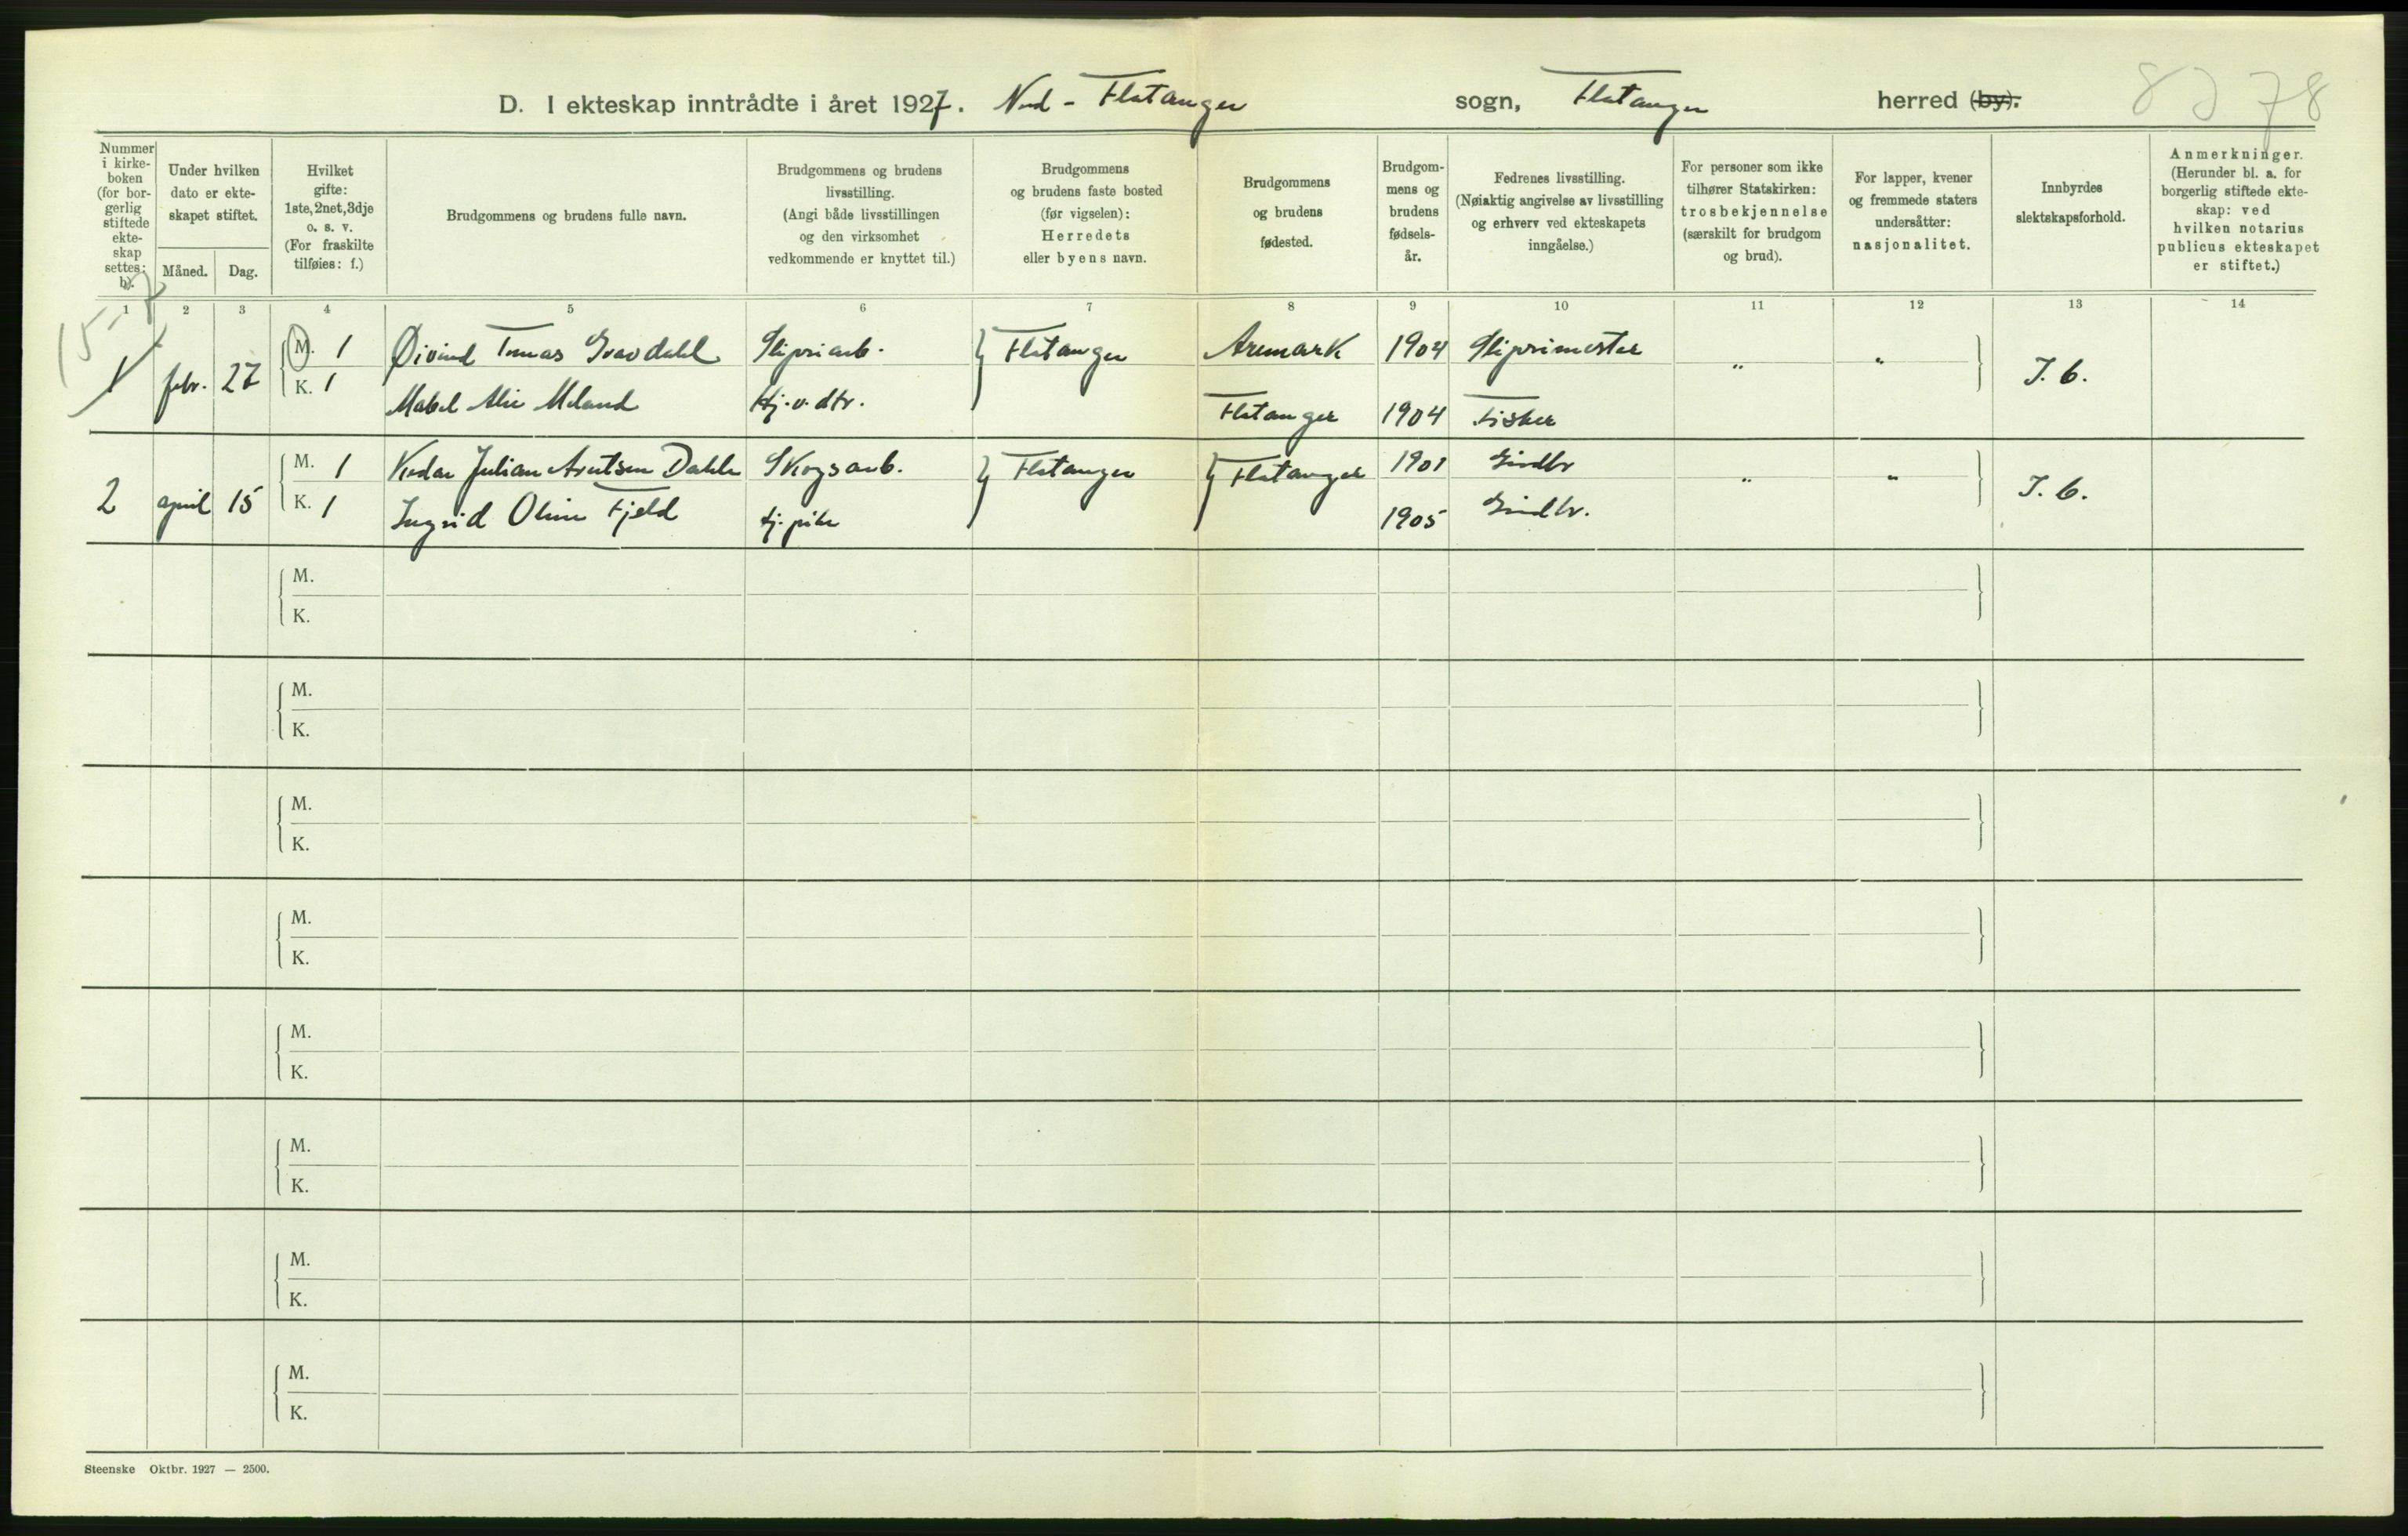 D. I ekteskap inntrådte i året 1927. Ned-Flatanger sogn, Flatanger herred (by).
78
Nummer i kirkeboken (for borgerlig stiftede ekteskap settes: b).
Under hvilken dato er ekteskapet stiftet.
Måned. Dag.
Hvilket gifte: 1ste, 2net, 3dje o. s. v. (For fraskilte tilføies: f.)
Brudgommens og brudens fulle navn.
Brudgommens og brudens livsstilling. (Angi både livsstillingen og den virksomhet vedkommende er knyttet til.)
Brudgommens og brudens faste bosted (før vigselen): Herredets eller byens navn.
Brudgommens og brudens fødested.
Brudgommens og brudens fødselsår.
Fedrenes livsstilling. (Nøiaktig angivelse av livsstilling og erhverv ved ekteskapets inngåelse.)
For personer som ikke tilhører Statskirken: trosbekjennelse (særskilt for brudgom og brud).
For lapper, kvener og fremmede staters undersåtter: nasjonalitet.
Innbyrdes slektskapsforhold.
Anmerkninger. (Herunder bl. a. for borgerlig stiftede ekteskap: ved hvilken notarius publicus ekteskapet er stiftet.)
1 2 3 4 5 6 7 8 9 10 11 12 13 14
15-7
1 febr. 27 M. 1 Øivind Tomas Gravdahl Sliperiarb. Flatanger Aremark 1904 Sliperimester " " I. b.
K. 1 Mabel Alie Meland Hj.v. dtr. Flatanger 1904 Fisker
2 april 15 M. 1 Julian Arntsen Dahle Skogsarb. Flatanger Flatanger 1901 Grdbr " " I. b.
K. 1 Ingrid Oline Fjeld tj.pike 1905 Grdbr.
M.
K.
M.
K.
M.
K.
M.
K.
M.
K.
M.
K.
M.
K.
M.
K.
Steenske Oktbr. 1927 — 2500.